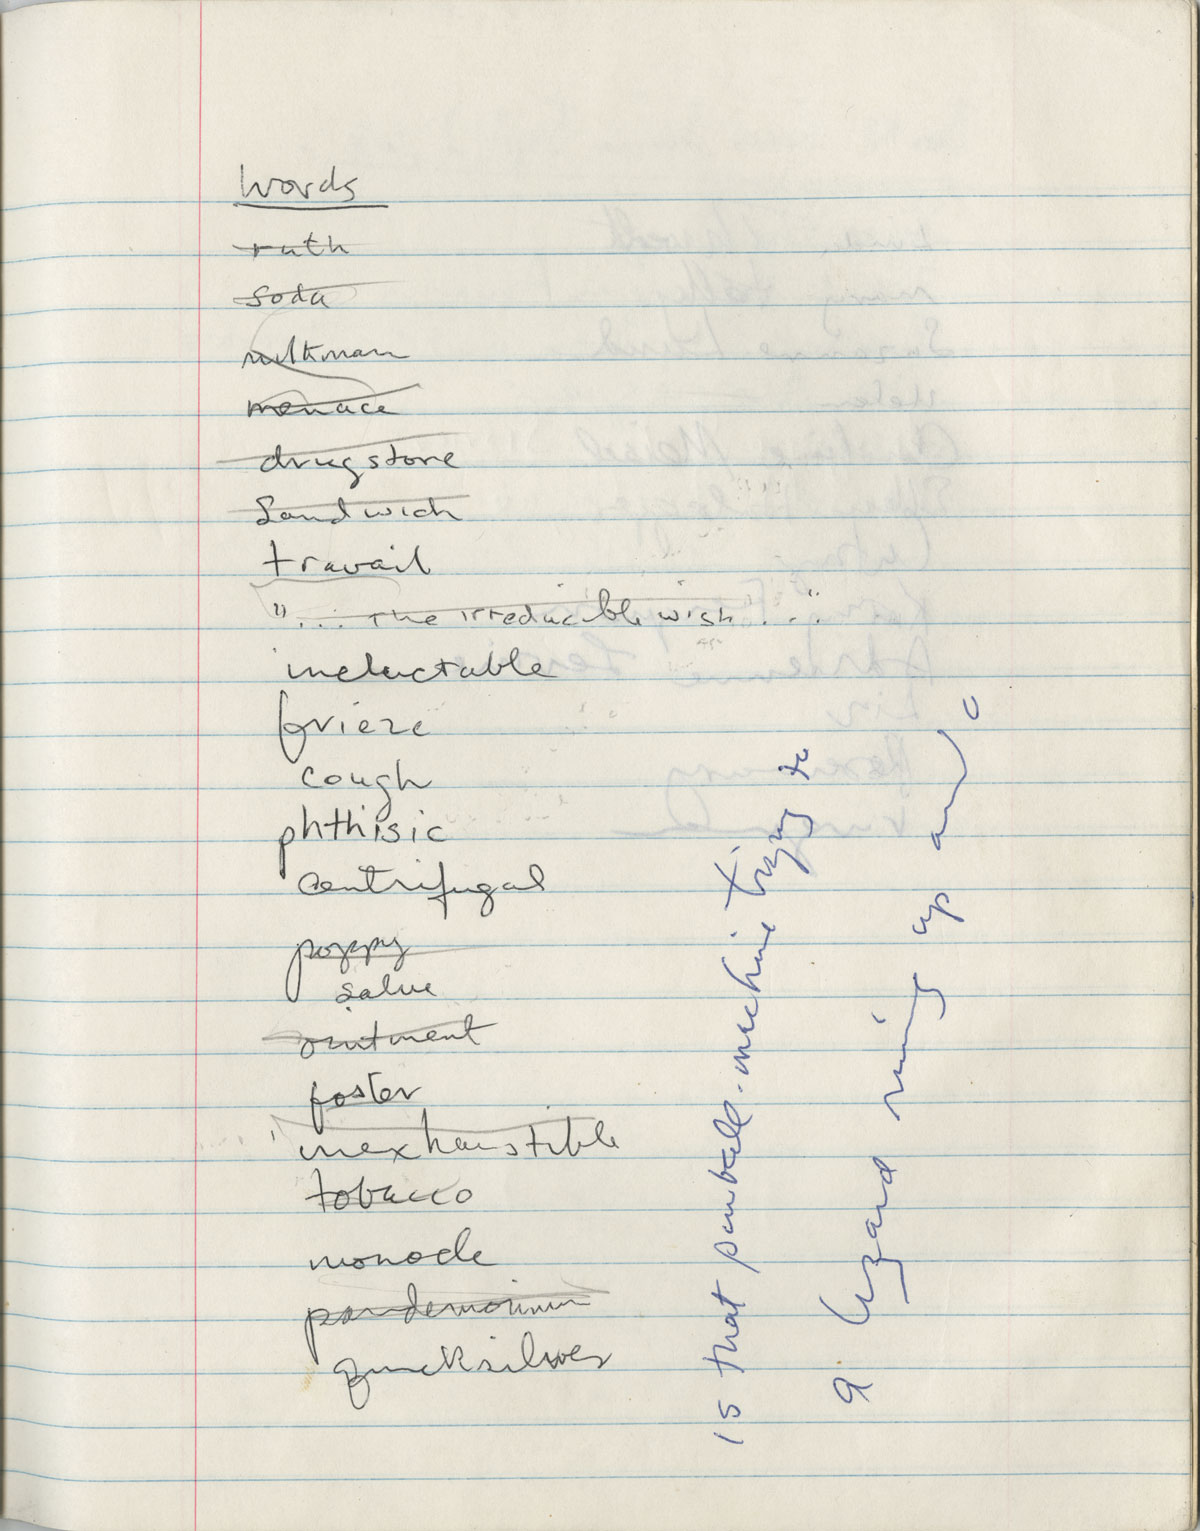 Words
ruth
soda
milkman
menace
drugstore
Sandwich
travail
"... the irreducible wish ..."
ineluctable
frieze
cough
phthisic
centrifugal
poppy
salve
ointment
foster
inexhaustible
tobacco
monocle
pandemonium
quicksilver
is that pinball-machine trying to
a lizard runing up and